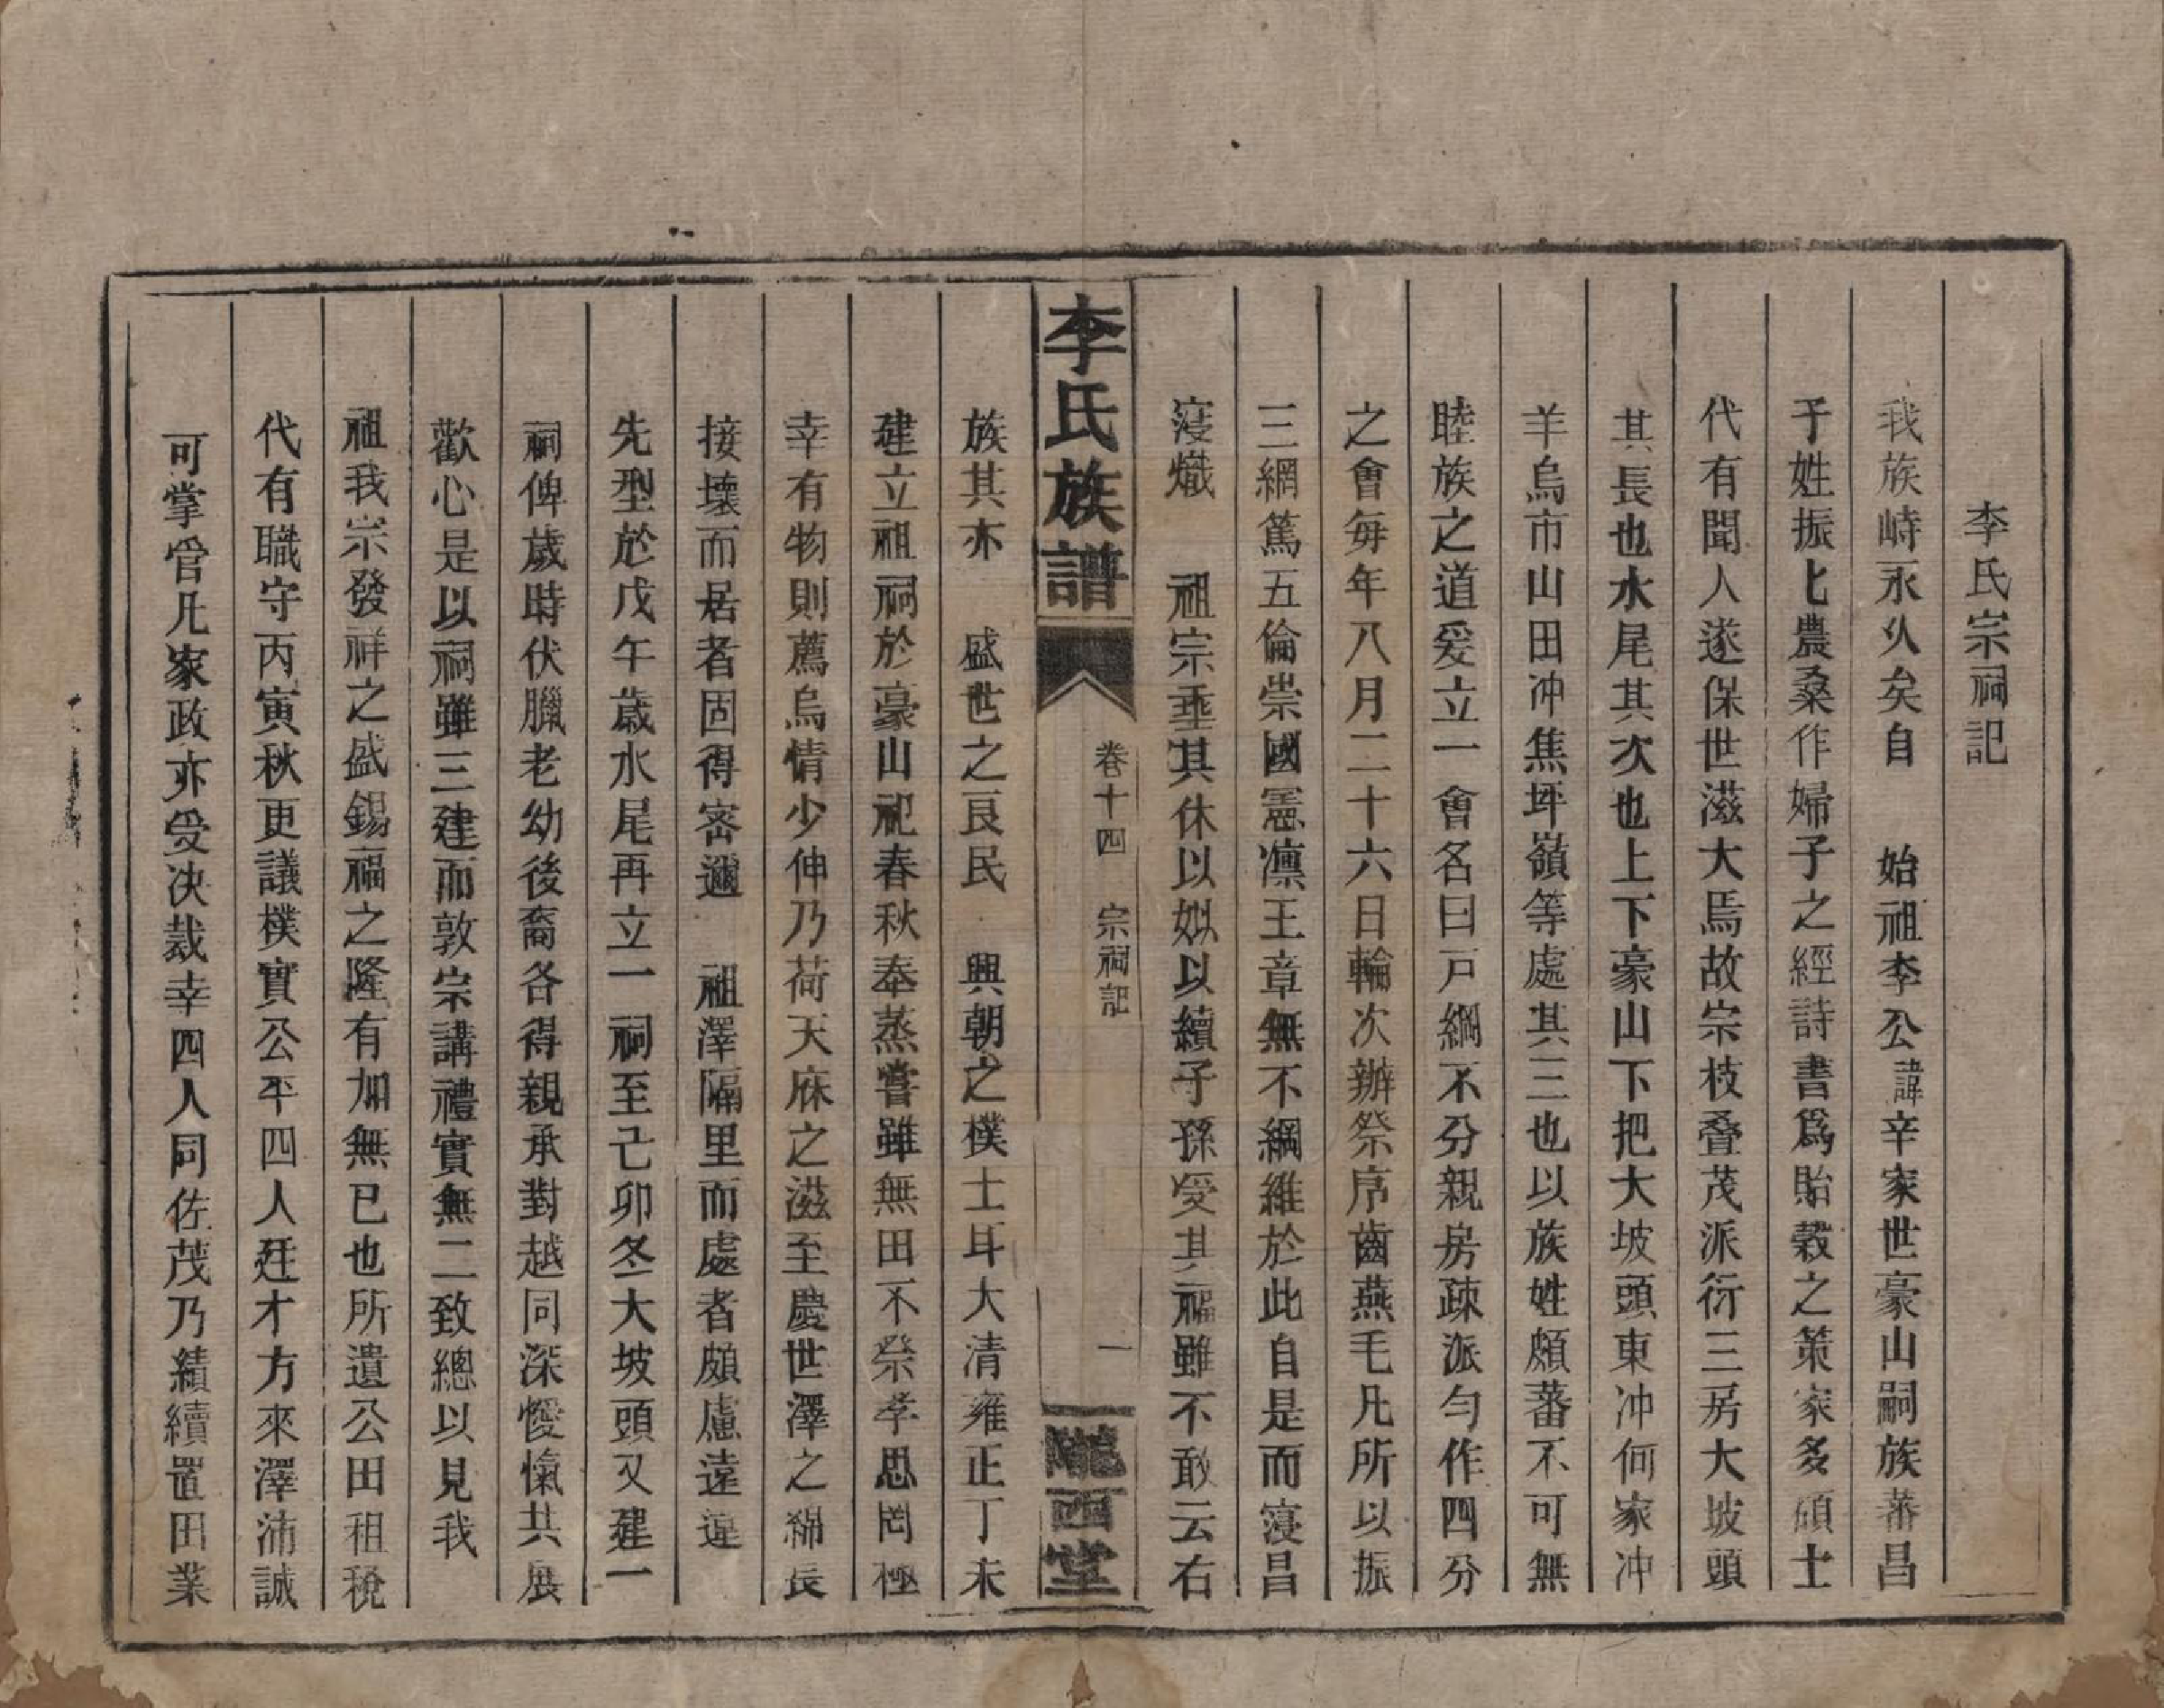 李氏宗祠記
我族峙永久矣自　始祖李公諱辛家世豪山嗣族蕃昌
子姓振七農桑作婦子之經詩書爲貽穀之策家多碩士
代有聞人遂保世滋大焉故宗枝叠茂派衍三房大坡頭
其長也水尾其次也上下豪山下把大坡頭東冲何家冲
羊烏市山田冲焦坪嶺等處其三也以族姓頗蕃不可無
睦族之道爰立一會名曰戸綱不分親房疎派勻作四分
之會毎年八月二十六日輪次辦祭序齒燕毛凡所以振
三綱篤五倫崇國憲凛王章無不綱維於此自是而寖昌
寖熾　祖宗埀其休以姒以續子孫受其福雖不敢云右
李氏族譜
卷十四　宗祠記
一
隴西堂
族其亦　盛世之良民　興朝之樸士耳大清雍正丁未
建立祖祠於豪山祀春秋奉蒸嘗雖無田不祭孝思罔極
幸有物則薦烏情少伸乃荷天庥之滋至慶世澤之綿長
接壤而居者固得密邇　祖澤隔里而處者頗慮遠違
先型於戊午歲水尾再立一祠至己卯冬大坡頭又建一
祠俾歲時伏臘老幼後裔各得親承對越同深慢愾共展
歡心是以祠雖三建而敦宗講禮實無二致總以見我
祖我宗發祥之盛錫福之隆有加無已也所遺公田租稅
代有職守丙寅秋更議樸實公平四人廷才方來澤沛誠
可掌官凡家政亦受决裁幸四人同佐茂乃績續置田業